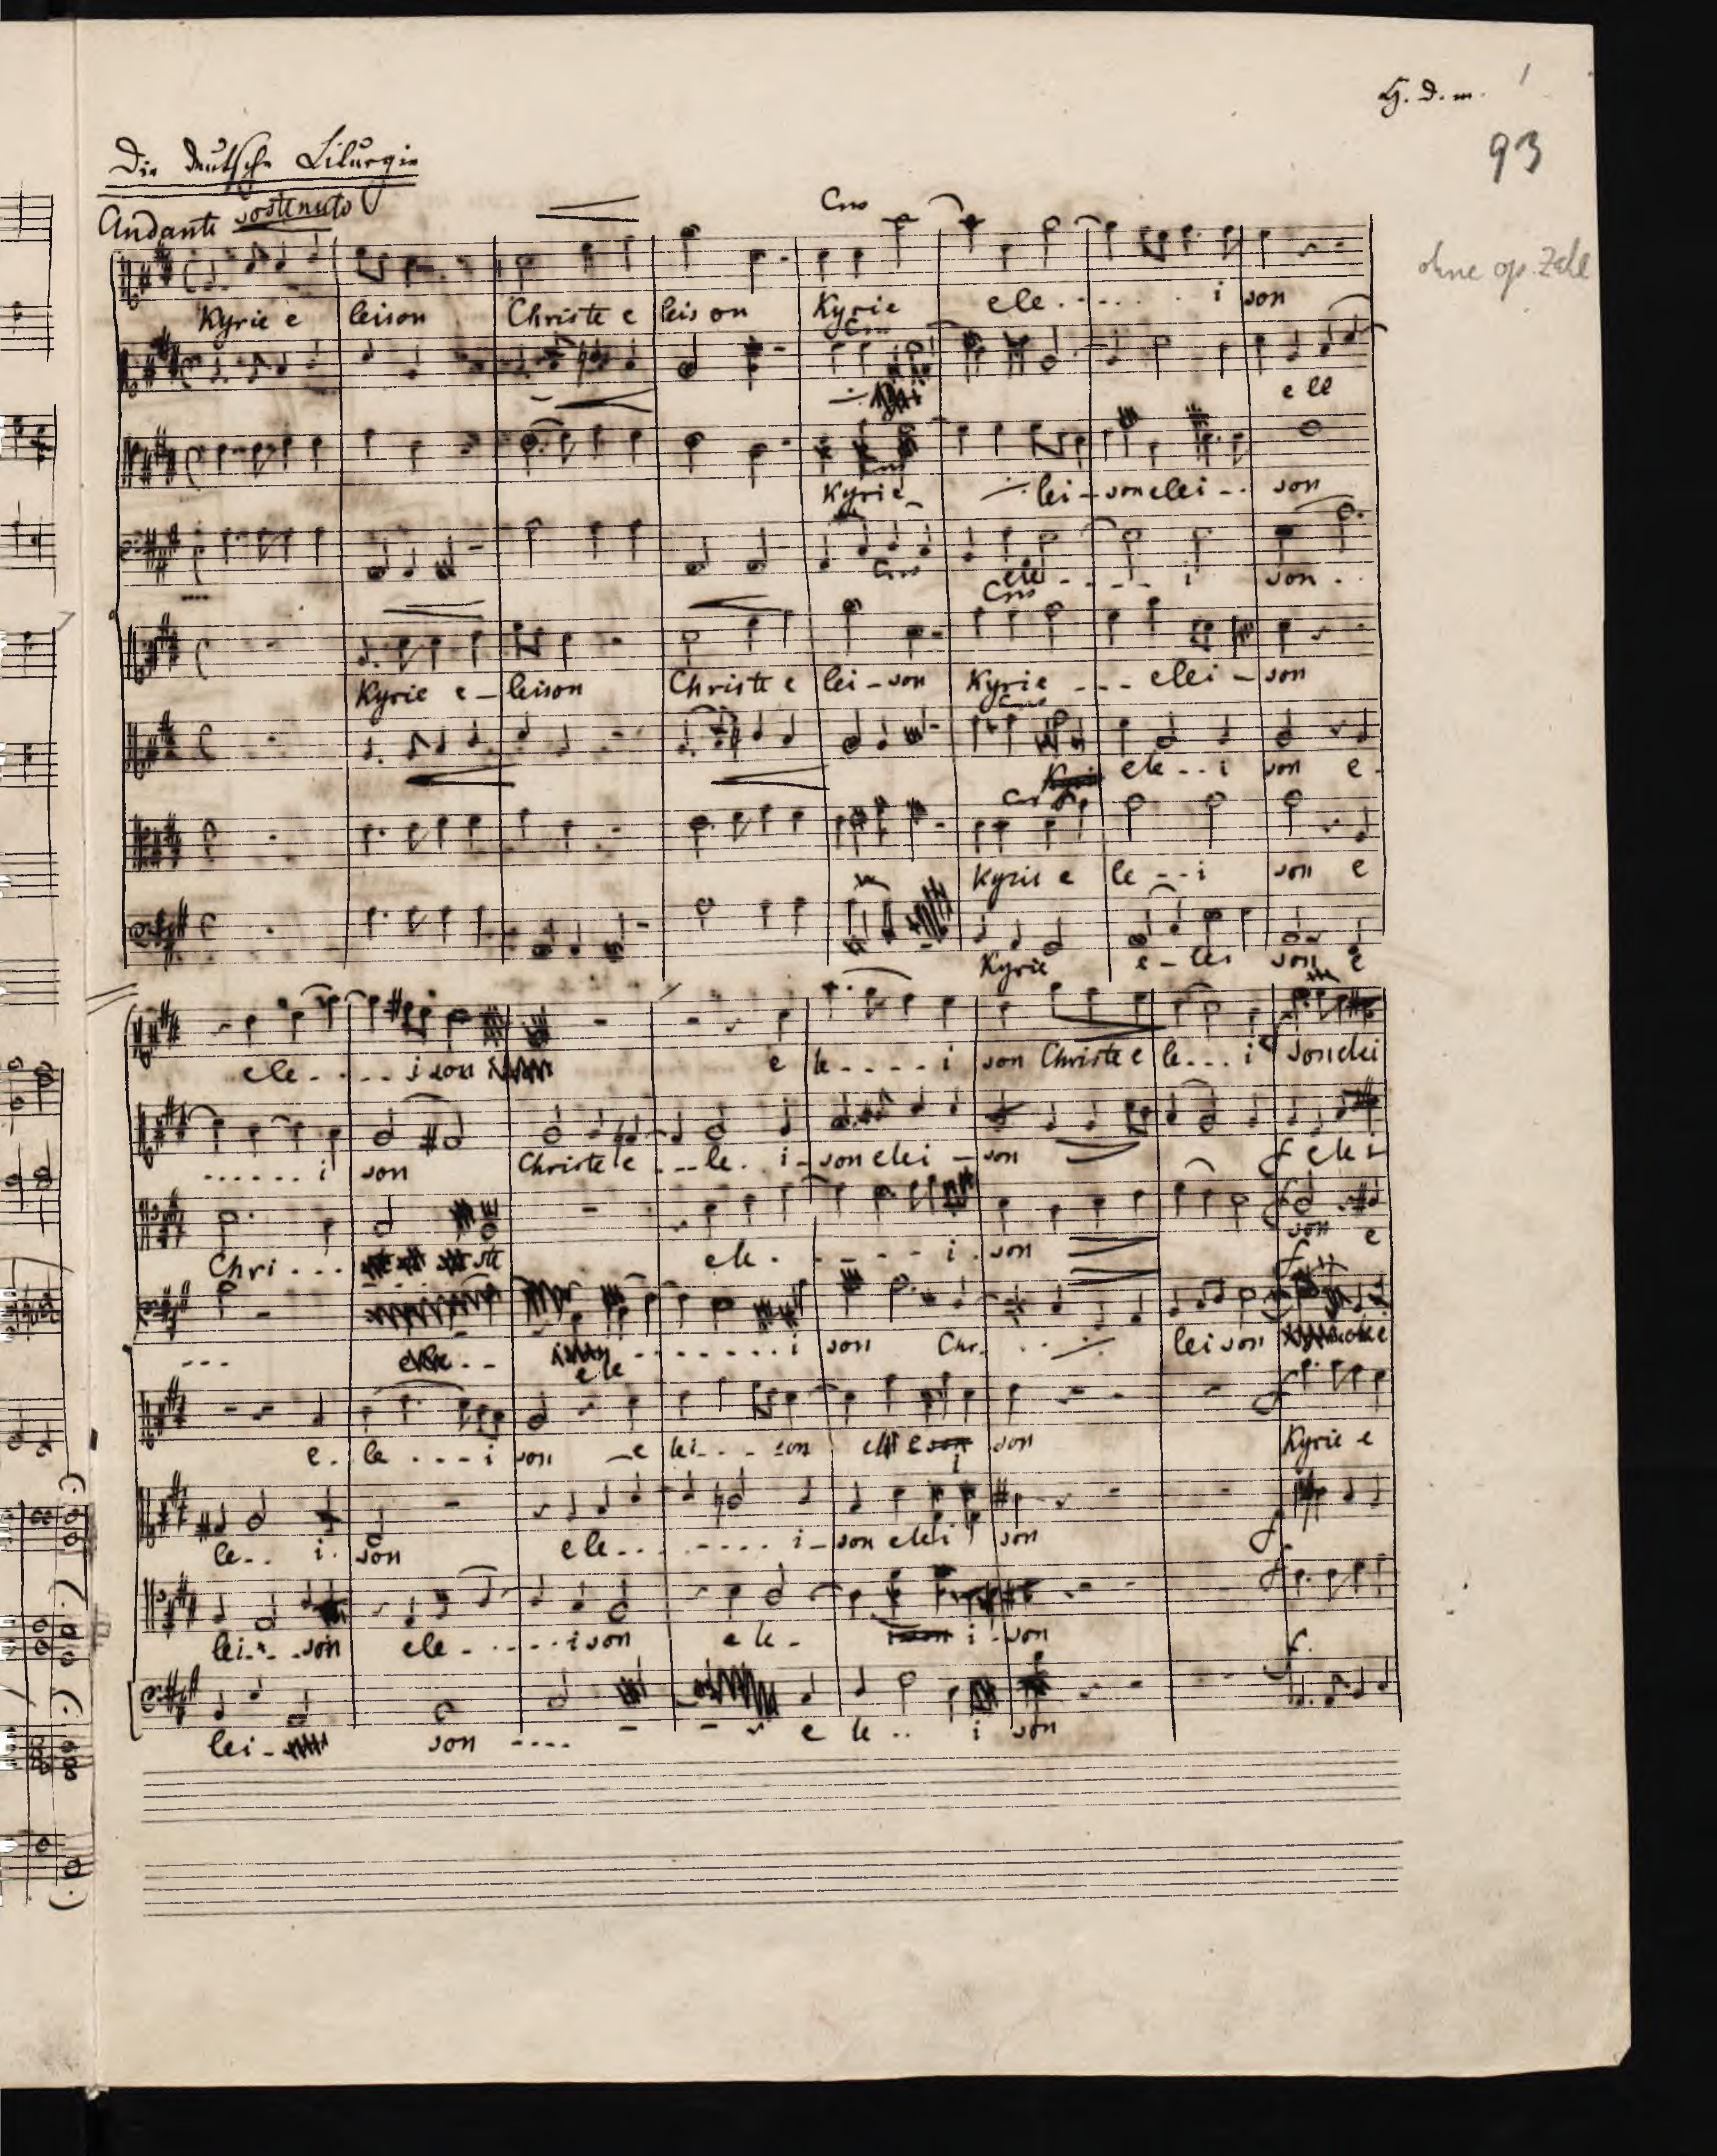 H. d. m. 1
93
Die deutsche Liturgie
Andante sostenuto
ohne op. Zahl
Cres
Kyrie e leison Christe e leison Kyrie ele . . . . . i son
Cres
e le
Kyrie lei - son elei - . son
Cres
ele - - - - i son . .
Cres
Kyrie e - leison Christe e lei - son Kyrie - - - elei - son
Cres
ele - - i son e -
Cres
Kyrie e le - - i son e
Kyrie e - lei son e
ele - . . . - i son e le - - - - i son Christe e le - . . i son elei
. . . . . . i son Christe e - - - le . i - son elei - son f elei
Chri . . . ste ele . . - - - i . son f son e
- - - ele . . . . . . . . i son Chr. . . leison
e . le . . . - i son - e lei - . . son son f Kyrie e
le - . . i . son ele . . . . . . . i - son elei son f
lei . . . son ele - . . . . . ison ele - i - son f
lei - son - - - - e le . . i son f.